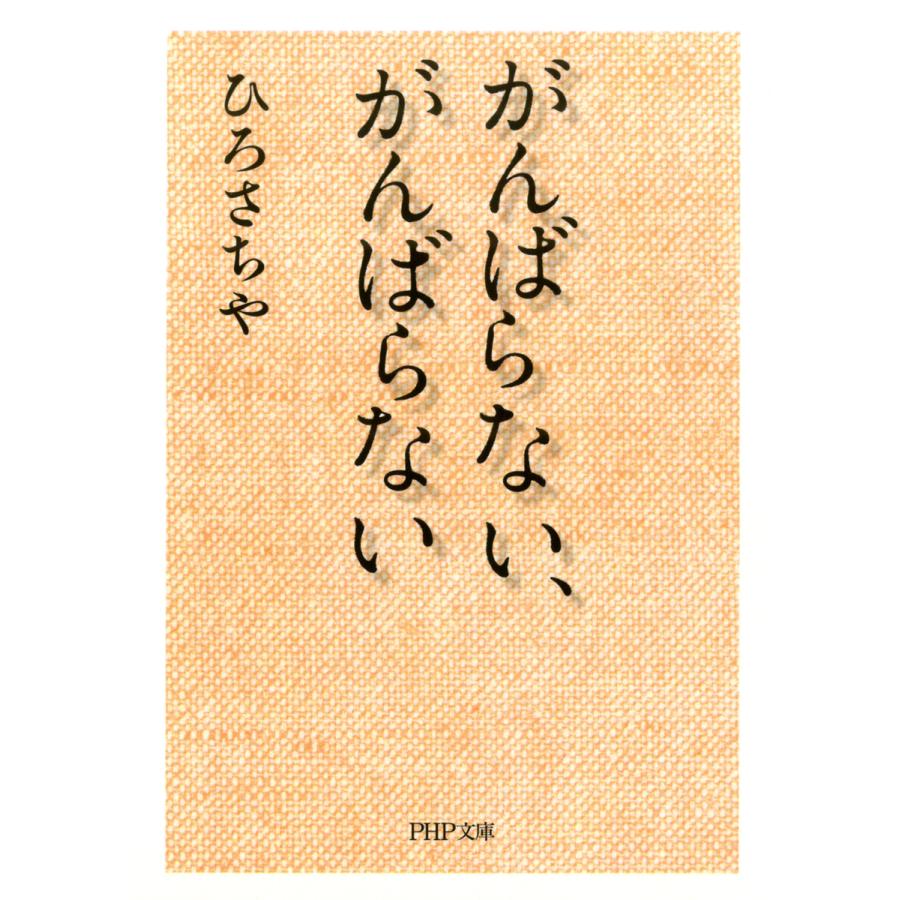 がんばらない、
がんばらない
ひろさちや
PHP文庫